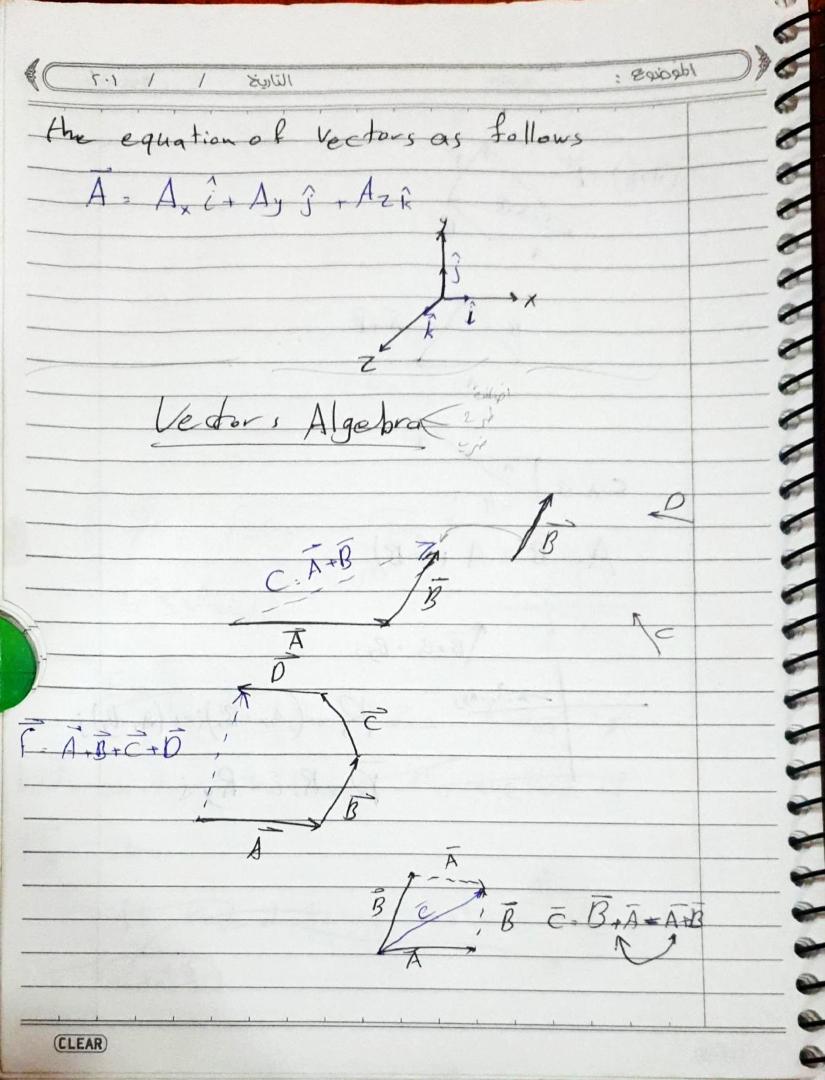 الموضوع :
التاريخ / / ٢٠١
the equation of vectors as follows
A⃗ = Aₓ î + Ay ĵ + Az k̂
y
ĵ
x
î
k̂
z
Vectors Algebra
ضرب
D
B⃗
C = A⃗+B⃗
B⃗
A⃗
C
D⃗
C⃗
F⃗ = A⃗+B⃗+C⃗+D⃗
B⃗
A⃗
A̅
B⃗
C̅
B̅
C̅ = B̅+A̅ = A̅+B̅
A̅
CLEAR